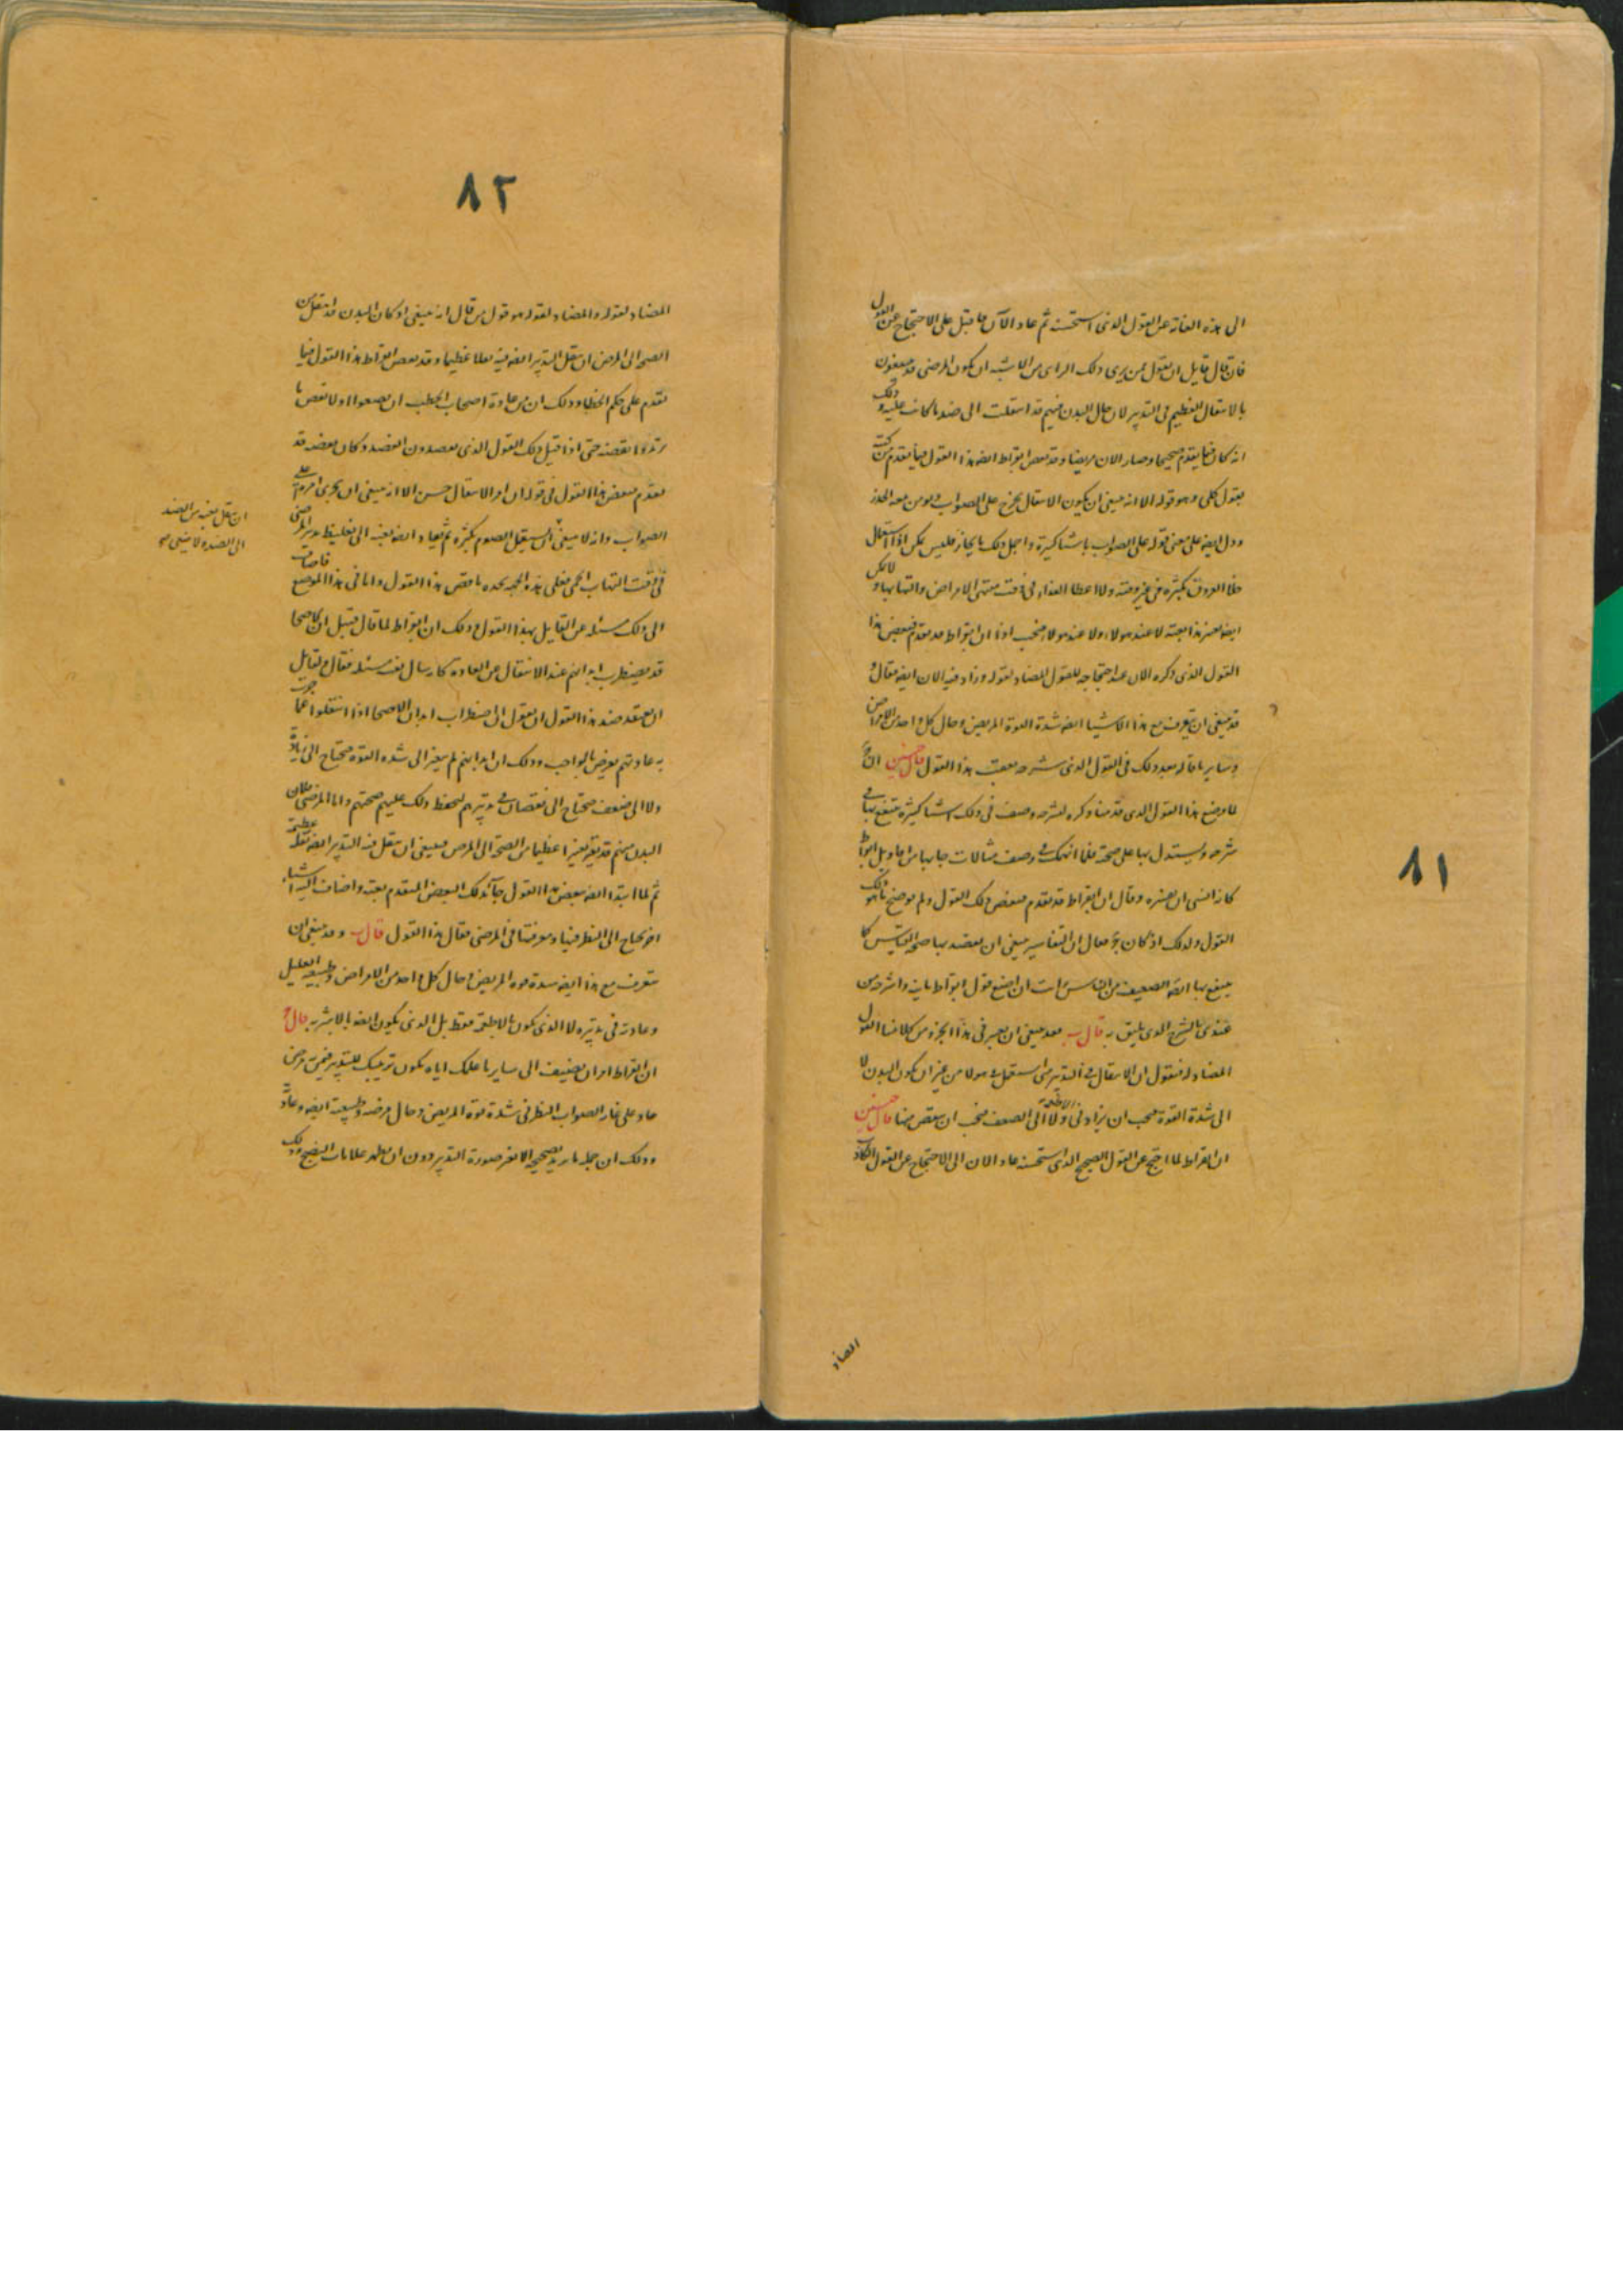 ٨١
الى هذه الغاية عن القول الذى استحسنه ثم عاد الآن فاقبل على الاحتجاج عن القول
فان قال قايل ان بقول من يرى ذلك الراى من الاشبه ان يكون المرضى قد
بالانتقال العظيم فى التدبير لان حال البدن منهم قد انتقلت الى ضد ما كانت عليه وذلك
انه كان فيما تقدم صحيحا وصار الان مريضا وقد نقض ابقراط ايضا هذا القول فيما تقدم من
بقول كلى وهو قوله الا انه ينبغى ان يكون الانتقال يخرج على الصواب ويومن معه الحذر
ودل ايضا على معنى قوله على الصواب باشيا كثيرة واجمل ذلك بايجاز فليس يمكن اذا استعمال
خلا العروق بكثرة فى غير وقته ولا اعطا الغذاء فى وقت منتهى الامراض والتهابها ولا يمكن
ايضا بغتة لا عند هولاء ولا عند هولاء فيجب اذا ان ابقراط قد تقدم فنقض هذا
القول الذى ذكره الان عند احتجاجه للقول المضاد لقوله وزاد فيه الان ايضا فقال و
قد ينبغى ان يعرف مع هذا الاشيا ايضا شدة القوة المريض وحال كل واحد من الامراض
وساير ما قاله بعد ذلك فى القول الذى شرحه بعقب هذا القول قال حنين ان ج
لما وضع هذا القول الذى قدمنا ذكره لشرحه وصف فى ذلك اشيا كثيرة ينتفع بها فى
شرحه ويستدل بها على صحته فلما انهمك فى وصف مثالات جا بها من اقاويل ابقراط
كانه انسى ان يفسره وقال ان ابقراط قد تقدم فنقض ذلك القول ولم يوضح ما هو ذلك
القول ولذلك اذ كان ج فقال ان التفاسير ينبغى ان يقصد بها صحة القياس كما
ينتفع بها ايضا الضعيف من الناس رايت ان اضع قول ابقراط ثانية واشرحه من
عندى بالشرح الذى يليق به قال ب فقد ينبغى ان نخبر فى هذا الجزو من كلامنا القول
المضاد له فنقول ان الانتقال فى التدبير متى استعمل فى هولا من غير ان يكون البدن لا
الى شدة القوة فيجب ان يزاد فى الاطعمة ولا الى الضعف فيجب ان ينقص منها قال حنين
ان ابقراط لما احتج عن القول الصحيح الذى استحسنه عاد الان الى الاحتجاج عن القول الكاذب
المضاد
٨٢
المضاد لقوله والمضاد لقوله هو قول من قال انه ينبغى اذ كان البدن قد انتقل من
الصحة الى المرض ان ينقل التدبير ايضا فيه نقلا عظيما وقد نقض ابقراط هذا القول فيما
تقدم على حكم الخطبا وذلك ان من عادة اصحاب الخطب ان يضعوا اولا نقض ما
يريدوا نقضه حتى اذا قبل ذلك القول الذى يقصدون القصد وكان بعضه قد
تقدم فنقض هذا القول فى قوله ان امر الانتقال حسن الا انه ينبغى ان يجرى امره على
الصواب وانه لا ينبغى ان يستعمل الصوم بكثرة ثم يعاد ايضا بغتة الى تغليظ تدبير المرضى
فى وقت التهاب الحمى فعلى هذه الجهة نجده ناقض هذا القول واما فى هذا الموضع فاضاف
الى ذلك مسئلة عن القايل بهذا القول وذلك ان ابقراط لما قال قبيل ان الاصحا
قد يضطرب ابدانهم عند الانتقال عن العادة كانه سال نفسه مسئلة فقال ولقايل
ان يعتقد ضد هذا القول ان يقول ان اضطراب ابدان الاصحا اذا انتقلوا عما جرت
به عادتهم يعرض بالواجب وذلك ان ابدانهم لم يتغير الى شدة القوة فتحتاج الى زيادة
ولا الى ضعف فتحتاج الى نقصان فى تدبيرهم لتحفظ ذلك عليهم صحتهم واما المرضى فلان
البدن منهم قد تغير تغيرا عظيما من الصحة الى المرض فينبغى ان ينقل فيه التدبير ايضا نقلة عظيمة
ثم لما ابتدا ايضا بنقض هذا القول جا بذلك البعض المتقدم بعينه واضاف اليه اشياء
اخر يحتاج الى النظر فيها ومعرفتها فى المرضى فقال هذا القول قال ب وقد ينبغى ان
نتعرف مع هذا ايضا شدة قوة المريض وحال كل واحد من الامراض وطبيعة العليل
وعادته فى تدبيره لا الذى يكون بالاطعمة فقط بل الذى يكون ايضا بالاشربة قال ج
ان ابقراط امر ان نضيف الى ساير ما علمك اياه يكون ترتيبك للتدبير فيمن مرض
حاد على غاية الصواب النظر فى شدة قوة المريض وحال مرضه وطبيعته ايضا وعادته
وذلك ان جملة ما يريد تصحيحه الا تغير صورة التدبير دون ان يظهر علامات النضج وذلك
ان تنقل بغتة من الضد
الى الضد ولا شى